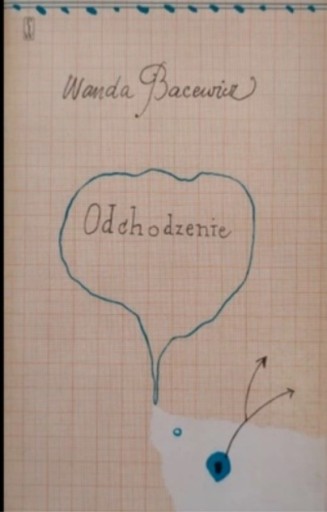 Wanda Bacewicz
Odchodzenie